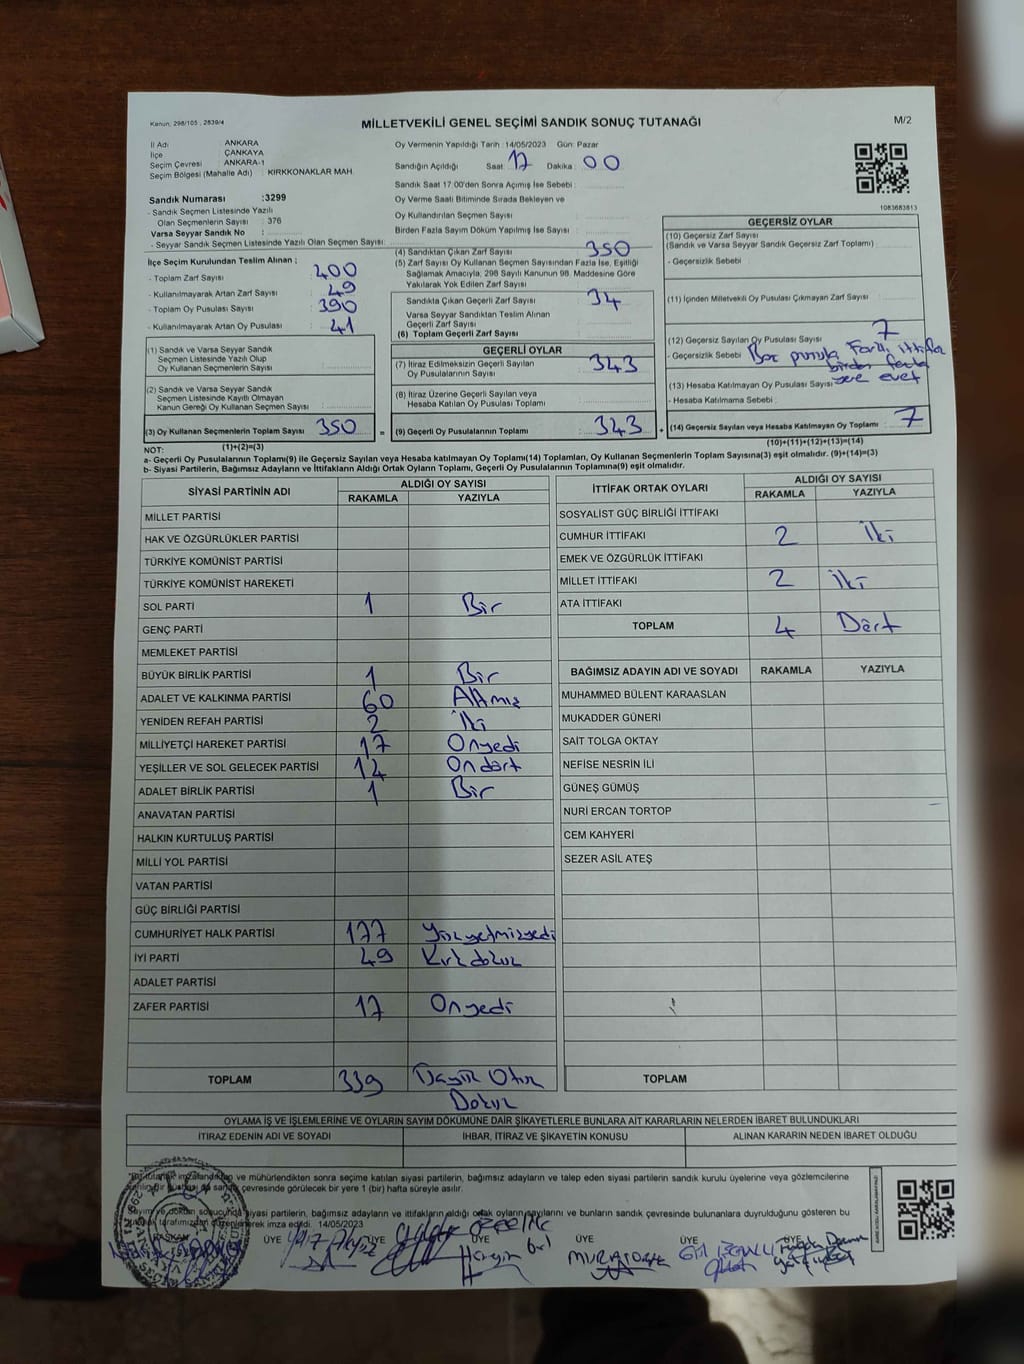 Kanun; 298/105 , 2839/4
MİLLETVEKİLİ GENEL SEÇİMİ SANDIK SONUÇ TUTANAĞI
M/2
İl Adı ANKARA
İlçe ÇANKAYA
Seçim Çevresi : ANKARA-1
Seçim Bölgesi (Mahalle Adı) : KIRKKONAKLAR MAH.
Oy Vermenin Yapıldığı Tarih : 14/05/2023 Gün: Pazar
Sandığın Açıldığı Saat: 17 Dakika : 00
Sandık Saat 17:00'den Sonra Açımış İse Sebebi :
Oy Verme Saati Bitiminde Sırada Bekleyen ve
Oy Kullandırılan Seçmen Sayısı
Birden Fazla Sayım Döküm Yapılmış İse Sayısı :
1083683813
Sandık Numarası :3299
- Sandık Seçmen Listesinde Yazılı
Olan Seçmenlerin Sayısı : 376
Varsa Seyyar Sandık No :
- Seyyar Sandık Seçmen Listesinde Yazılı Olan Seçmen Sayısı:
İlçe Seçim Kurulundan Teslim Alınan ;
- Toplam Zarf Sayısı : 400
- Kullanılmayarak Artan Zarf Sayısı : 49
- Toplam Oy Pusulası Sayısı : 390
- Kullanılmayarak Artan Oy Pusulası : 41
(1) Sandık ve Varsa Seyyar Sandık
Seçmen Listesinde Yazılı Olup
Oy Kullanan Seçmenlerin Sayısı :
(2) Sandık ve Varsa Seyyar Sandık
Seçmen Listesinde Kayıtlı Olmayan
Kanun Gereği Oy Kullanan Seçmen Sayısı :
(3) Oy Kullanan Seçmenlerin Toplam Sayısı : 350
(1)+(2)=(3)
(4) Sandıktan Çıkan Zarf Sayısı : 350
(5) Zarf Sayısı Oy Kullanan Seçmen Sayısından Fazla İse, Eşitliği
Sağlamak Amacıyla, 298 Sayılı Kanunun 98. Maddesine Göre
Yakılarak Yok Edilen Zarf Sayısı :
Sandıkta Çıkan Geçerli Zarf Sayısı : 34
Varsa Seyyar Sandıktan Teslim Alınan
Geçerli Zarf Sayısı
(6) Toplam Geçerli Zarf Sayısı :
GEÇERLİ OYLAR
(7) İtiraz Edilmeksizin Geçerli Sayılan
Oy Pusulalarının Sayısı : 343
(8) İtiraz Üzerine Geçerli Sayılan veya
Hesaba Katılan Oy Pusulası Toplamı :
= (9) Geçerli Oy Pusulalarının Toplamı : 343
GEÇERSİZ OYLAR
(10) Geçersiz Zarf Sayısı
(Sandık ve Varsa Seyyar Sandık Geçersiz Zarf Toplamı) :
- Geçersizlik Sebebi :
(11) İçinden Milletvekili Oy Pusulası Çıkmayan Zarf Sayısı :
(12) Geçersiz Sayılan Oy Pusulası Sayısı : 7
- Geçersizlik Sebebi : Boş pusula Farklı ittifak
birden fazla
yere evet
(13) Hesaba Katılmayan Oy Pusulası Sayısı :
- Hesaba Katılmama Sebebi :
+ (14) Geçersiz Sayılan veya Hesaba Katılmayan Oy Toplamı : 7
(10)+(11)+(12)+(13)=(14)
NOT:
a- Geçerli Oy Pusulalarının Toplamı(9) ile Geçersiz Sayılan veya Hesaba katılmayan Oy Toplamı(14) Toplamları, Oy Kullanan Seçmenlerin Toplam Sayısına(3) eşit olmalıdır. (9)+(14)=(3)
b- Siyasi Partilerin, Bağımsız Adayların ve İttifakların Aldığı Ortak Oyların Toplamı, Geçerli Oy Pusulalarının Toplamına(9) eşit olmalıdır.
SİYASİ PARTİNİN ADI ALDIĞI OY SAYISI
RAKAMLA YAZIYLA
MİLLET PARTİSİ
HAK VE ÖZGÜRLÜKLER PARTİSİ
TÜRKİYE KOMÜNİST PARTİSİ
TÜRKİYE KOMÜNİST HAREKETİ
SOL PARTİ 1 Bir
GENÇ PARTİ
MEMLEKET PARTİSİ
BÜYÜK BİRLİK PARTİSİ 1 Bir
ADALET VE KALKINMA PARTİSİ 60 Altmış
YENİDEN REFAH PARTİSİ 2 İki
MİLLİYETÇİ HAREKET PARTİSİ 17 Onyedi
YEŞİLLER VE SOL GELECEK PARTİSİ 14 Ondört
ADALET BİRLİK PARTİSİ 1 Bir
ANAVATAN PARTİSİ
HALKIN KURTULUŞ PARTİSİ
MİLLİ YOL PARTİSİ
VATAN PARTİSİ
GÜÇ BİRLİĞİ PARTİSİ
CUMHURİYET HALK PARTİSİ 177 Yüzyetmişyedi
İYİ PARTİ 49 Kırkdokuz
ADALET PARTİSİ
ZAFER PARTİSİ 17 Onyedi
TOPLAM 339 Üçyüz Otuz
Dokuz
İTTİFAK ORTAK OYLARI ALDIĞI OY SAYISI
RAKAMLA YAZIYLA
SOSYALİST GÜÇ BİRLİĞİ İTTİFAKI
CUMHUR İTTİFAKI 2 İki
EMEK VE ÖZGÜRLÜK İTTİFAKI
MİLLET İTTİFAKI 2 İki
ATA İTTİFAKI
TOPLAM 4 Dört
BAĞIMSIZ ADAYIN ADI VE SOYADI RAKAMLA YAZIYLA
MUHAMMED BÜLENT KARAASLAN
MUKADDER GÜNERİ
SAİT TOLGA OKTAY
NEFİSE NESRİN İLİ
GÜNEŞ GÜMÜŞ
NURİ ERCAN TORTOP
CEM KAHYERİ
SEZER ASİL ATEŞ
TOPLAM
OYLAMA İŞ VE İŞLEMLERİNE VE OYLARIN SAYIM DÖKÜMÜNE DAİR ŞİKAYETLERLE BUNLARA AİT KARARLARIN NELERDEN İBARET BULUNDUKLARI
İTİRAZ EDENİN ADI VE SOYADI İHBAR, İTİRAZ VE ŞİKAYETİN KONUSU ALINAN KARARIN NEDEN İBARET OLDUĞU
mühürlendikten sonra seçime katılan siyasi partilerin, bağımsız adayların ve talep eden siyasi partilerin sandık kurulu üyelerine veya gözlemcilerine
çevresinde görülecek bir yere 1 (bir) hafta süreyle asılır.
siyasi partilerin, bağımsız adayların ve ittifakların aldığı ortak oyların sayılarını ve bunların sandık çevresinde bulunanlara duyrulduğunu gösteren bu
tarafımızdan düzenlenerek imza edildi. 14/05/2023
BAŞKAN ÜYE ÜYE ÜYE ÜYE ÜYE